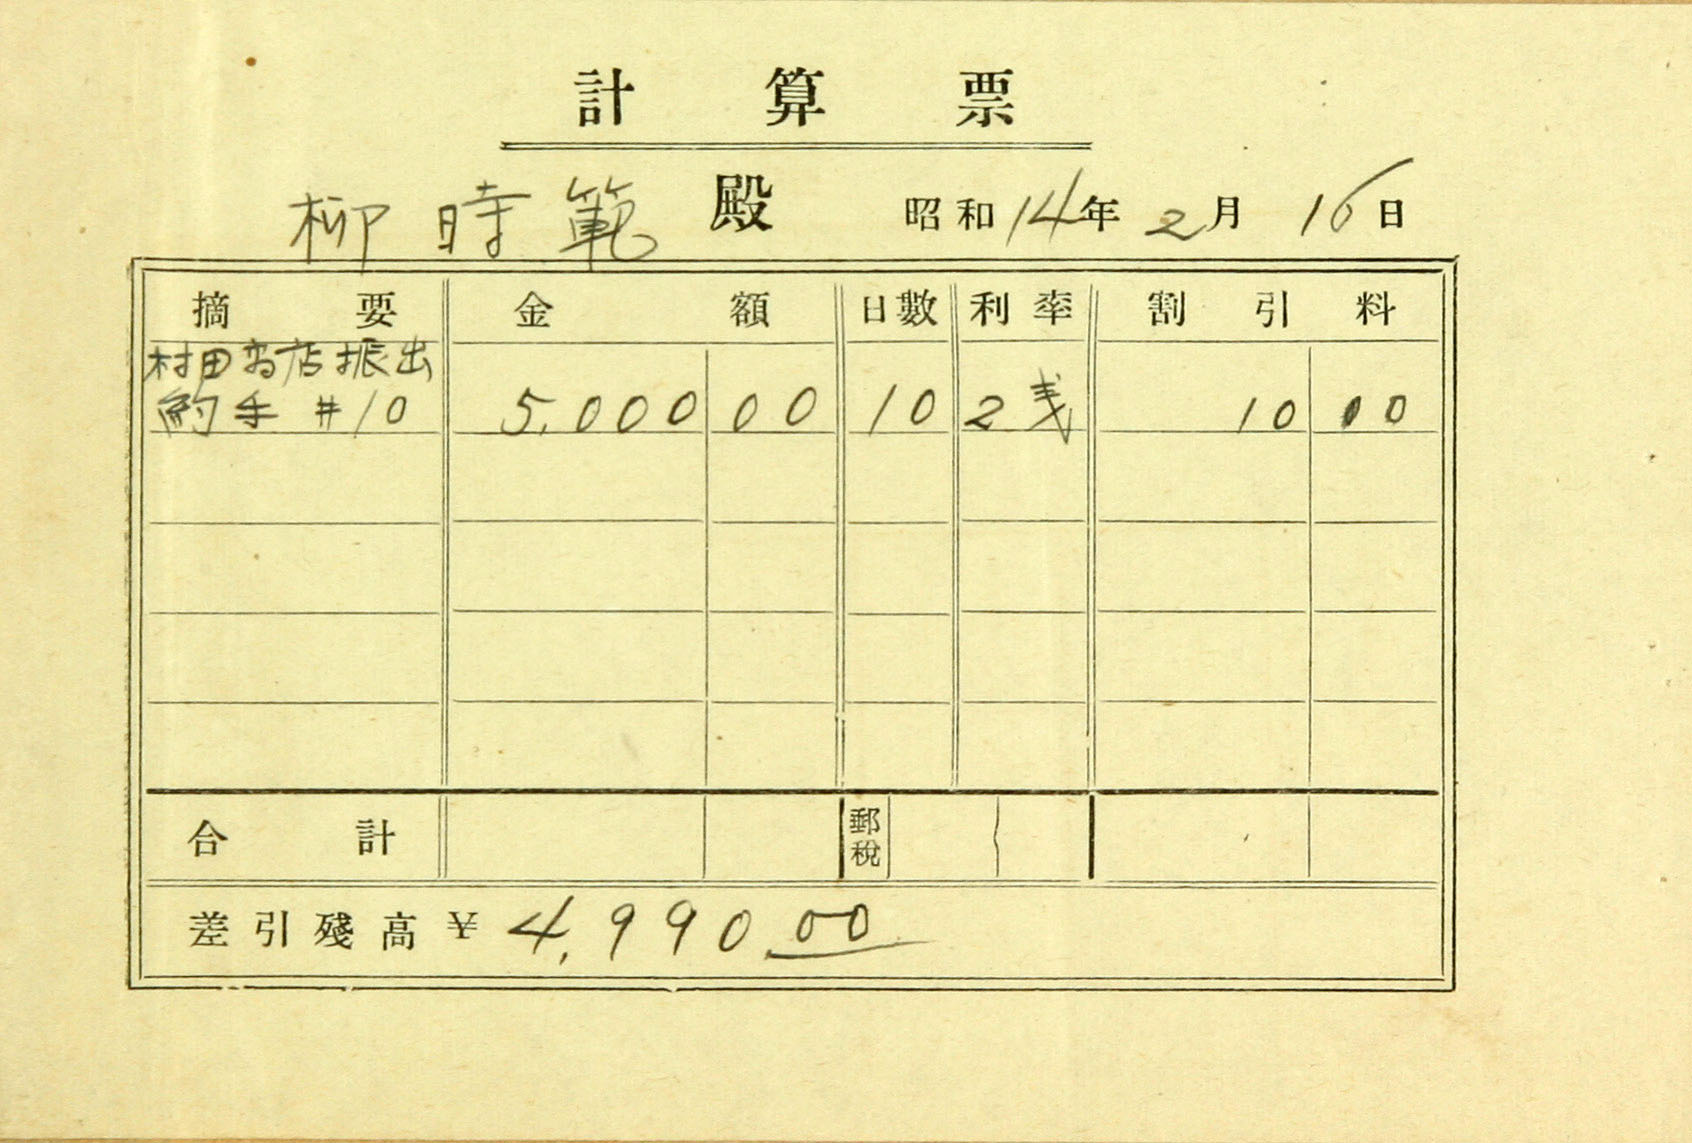 計算票
柳時範殿 昭和14年2月16日
摘要 金額 日數 利率 割引料
村田商店振出
約手 #10 5,000 00 10 2戋 10 00
合計 郵稅
差引殘高 ¥4,990.00